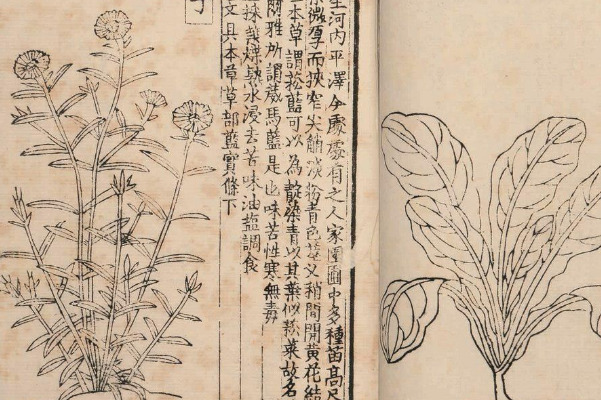 生河内平澤今處處有之人家園圃中多種苗高尺
微厚而狹窄尖䚡淡粉青色莖叉稍間開黄花結
本草謂菘藍可以為靛染青以其葉似菘菜故名
爾雅所謂葴馬藍是也味苦性寒無毒
採葉煠熟水浸去苦味油鹽調食
文具本草草部藍實條下